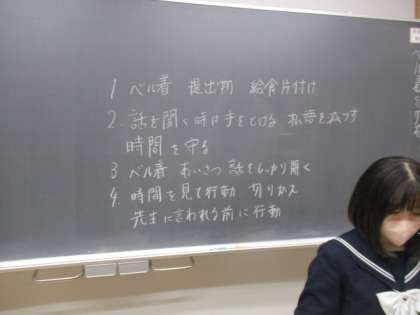 1 ベル着 提出物 給食片付け
2. 話を聞く時に手をとめる 私語を減らす
時間を守る
3 ベル着 あいさつ 話をしっかり聞く
4. 時間を見て行動 切りかえ
先生に言われる前に行動